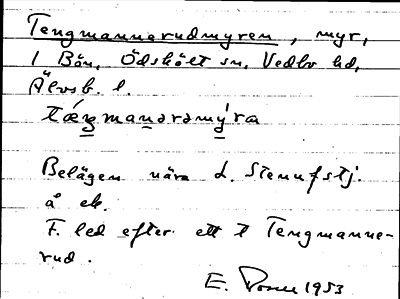 Tengmannerudmyren, myr,
1 Bön, Ödskölt sn, Vedbo hd,
Älvsb. l.
Belägen nära L. Stenufstj.
å ek.
F. led efter ett t Tengmanne-
rud.
E. 1953